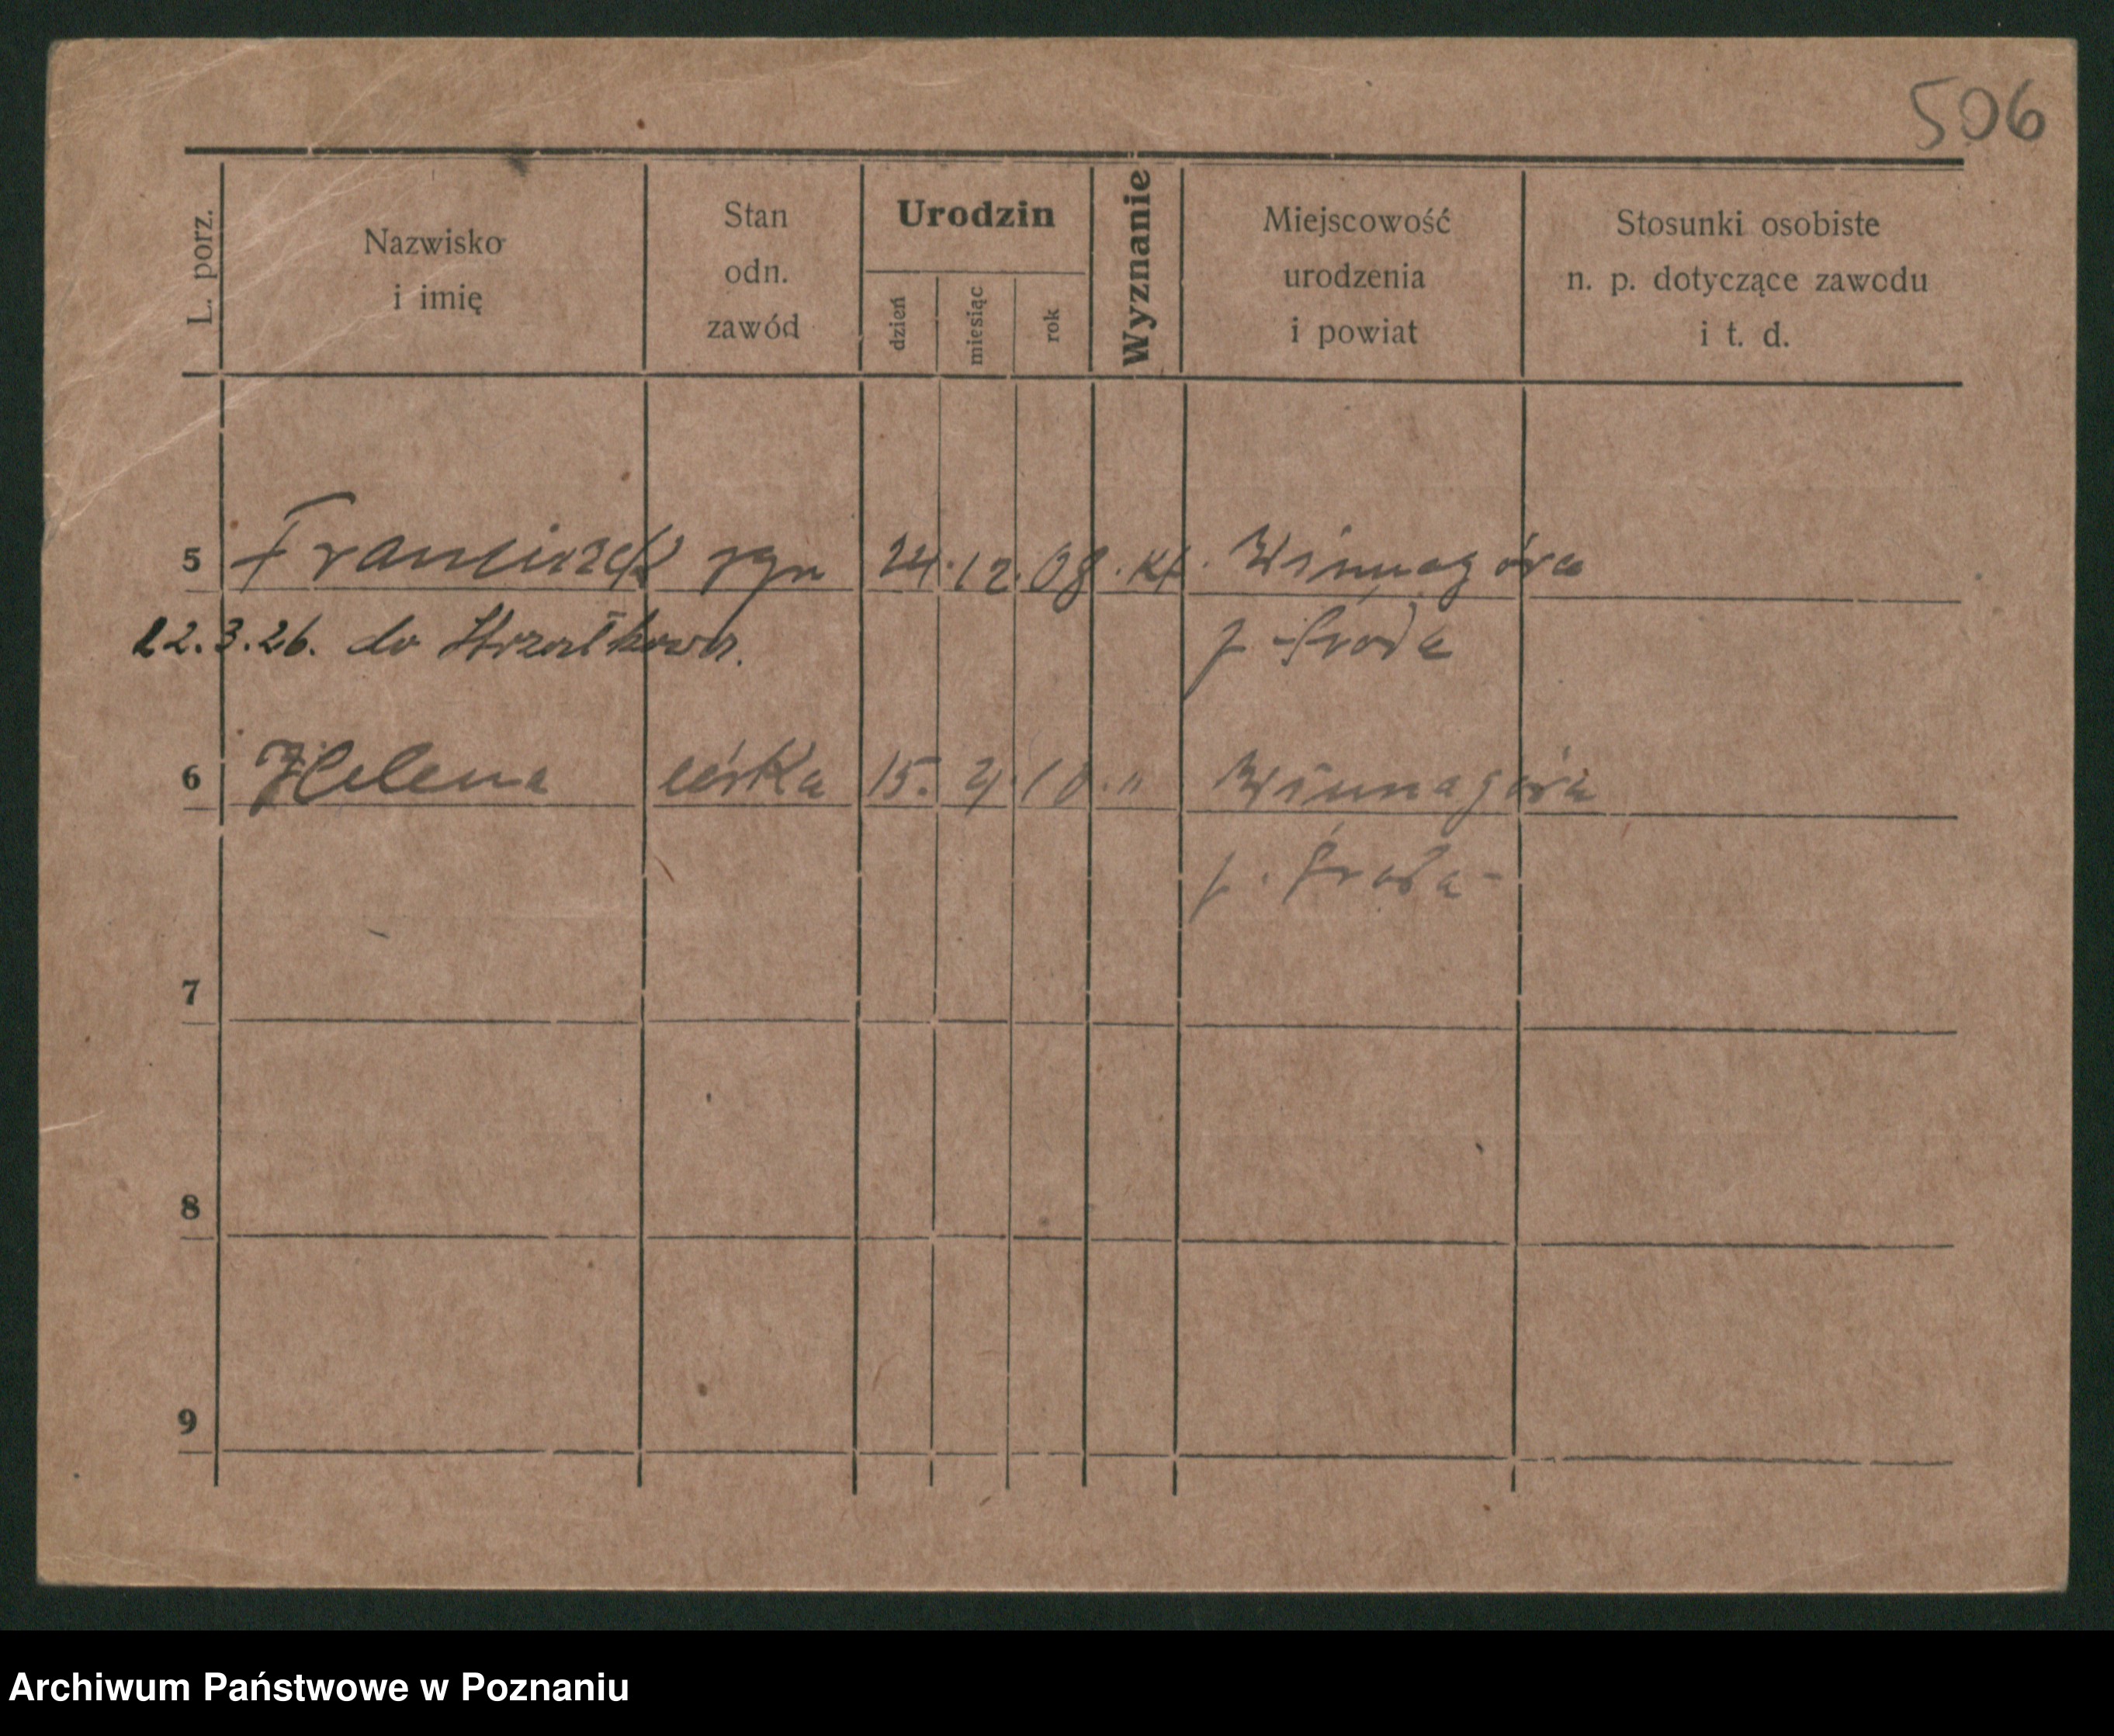 506
L. porz.
Nazwisko
i imię
Stan
odn.
zawód
Urodzin
dzień
miesiąc
rok
Wyznanie
Miejscowość
urodzenia
i powiat
Stosunki osobiste
n. p. dotyczące zawodu
i t. d.
5 Franciszek syn 24. 12. 08. kt. Winnagóra
22.3.26. do Strzałkowa. p. Środa
6 Helena córka 15. 4. 10. " Winnagóra
p. Środa
7
8
9
Archiwum Państwowe w Poznaniu